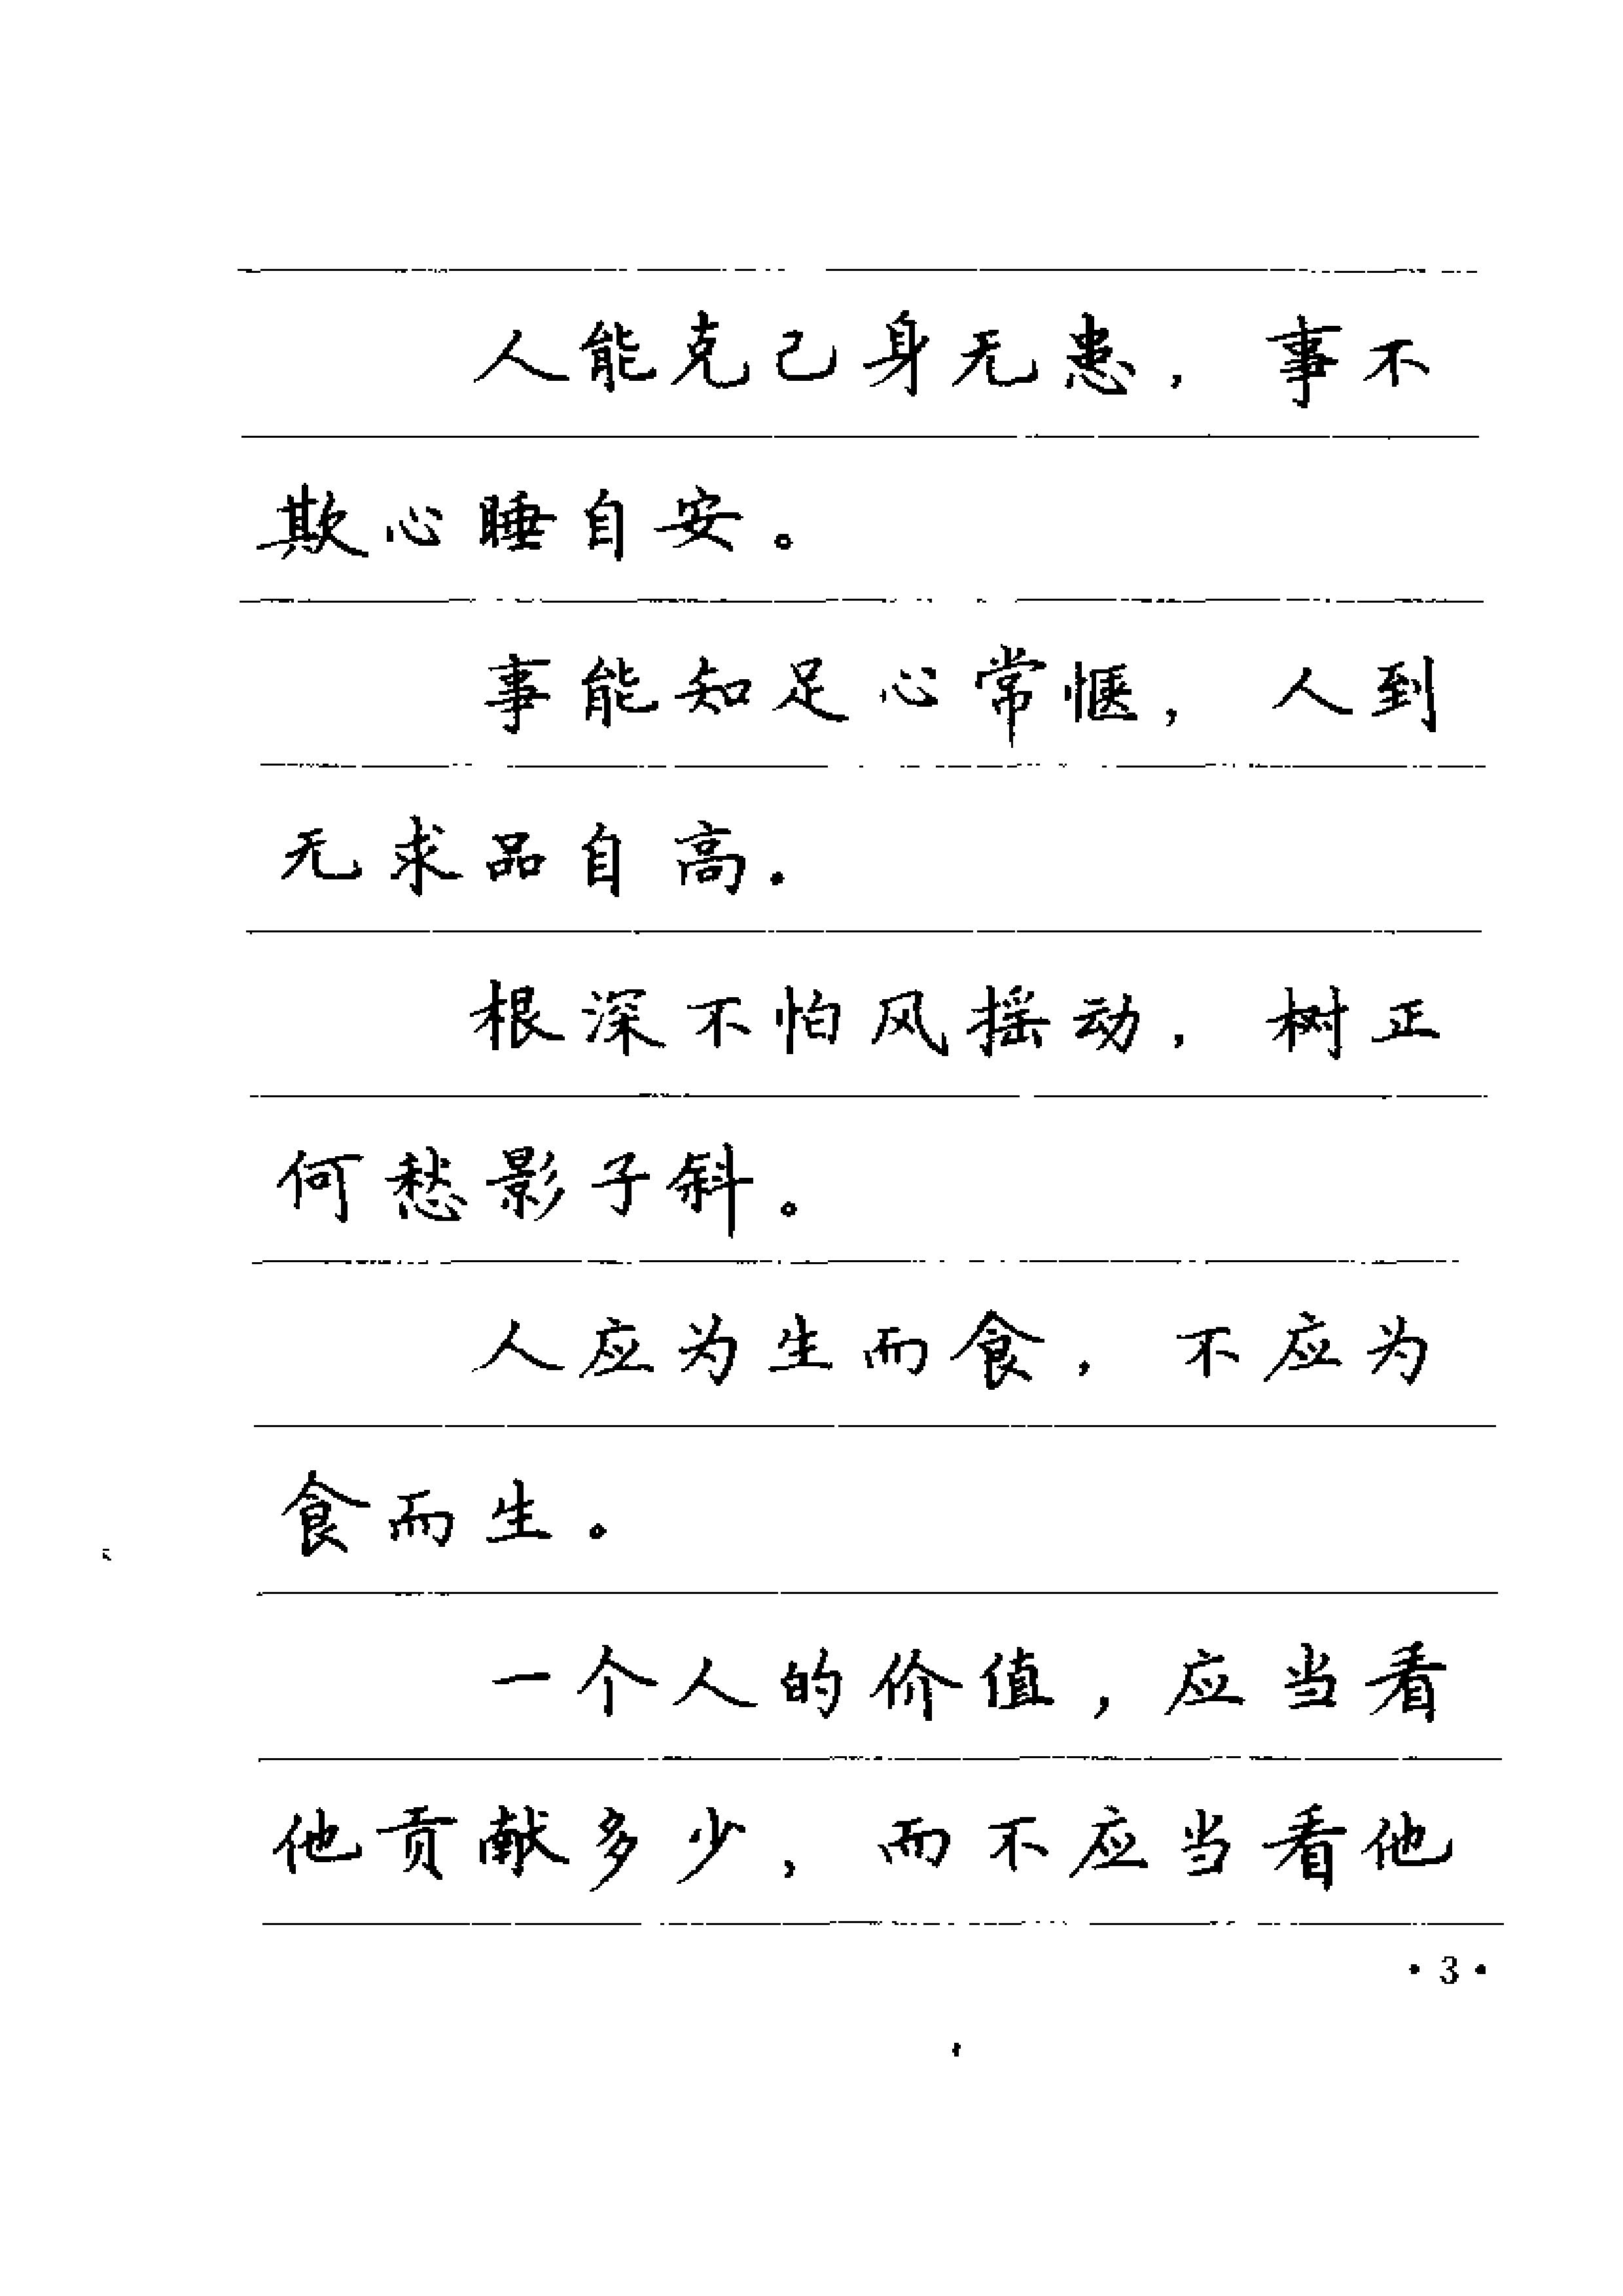 人能克己身无患，事不
欺心睡自安。
事能知足心常惬，人到
无求品自高。
根深不怕风摇动，树正
何愁影子斜。
人应为生而食，不应为
食而生。
一个人的价值，应当看
他贡献多少，而不应当看他
·3·